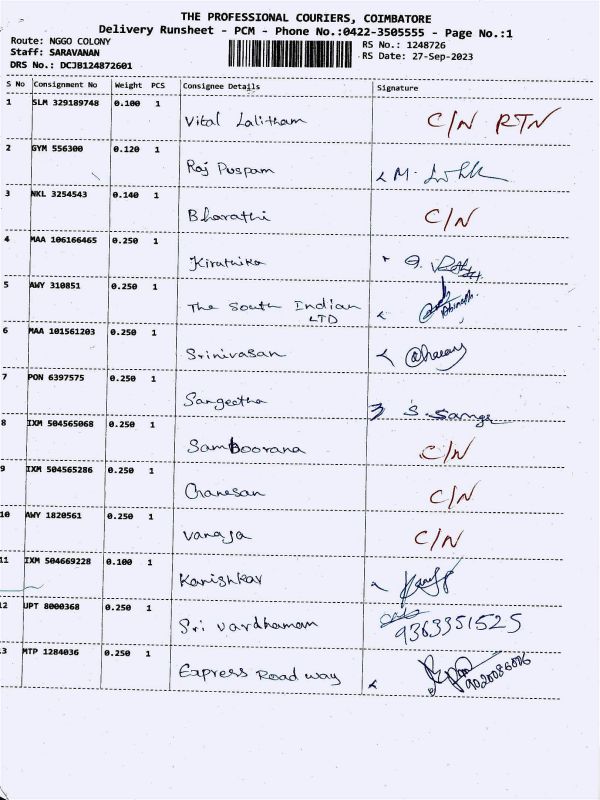 THE PROFESSIONAL COURIERS, COIMBATORE
Delivery Runsheet - PCM - Phone No.:0422-3505555 - Page No.:1
Route: NGGO COLONY
Staff: SARAVANAN
DRS No.: DCJB124872601
RS No.: 1248726
RS Date: 27-Sep-2023
S No Consignment No Weight PCS Consignee Details Signature
1 SLM 329189748 0.100 1 Vital Lalitham C/N RTN
2 GYM 556300 0.120 1 Raj Puspam M.
3 NKL 3254543 0.140 1 Bharathi C/N
4 MAA 106166465 0.250 1 Kirathika
5 AWY 310851 0.250 1 The South Indian
LTD
6 MAA 101561203 0.250 1 Srinivasan
7 PON 6397575 0.250 1 Sangeetha S.
8 IXM 504565068 0.250 1 Samboorana C/N
9 IXM 504565286 0.250 1 Ganesan C/N
10 AWY 1820561 0.250 1 Vanaja C/N
11 IXM 504669228 0.100 1 Kanishkar
12 UPT 8000368 0.250 1 Sri Vardhaman 9363351525
3 MTP 1284036 0.250 1 Express Road way